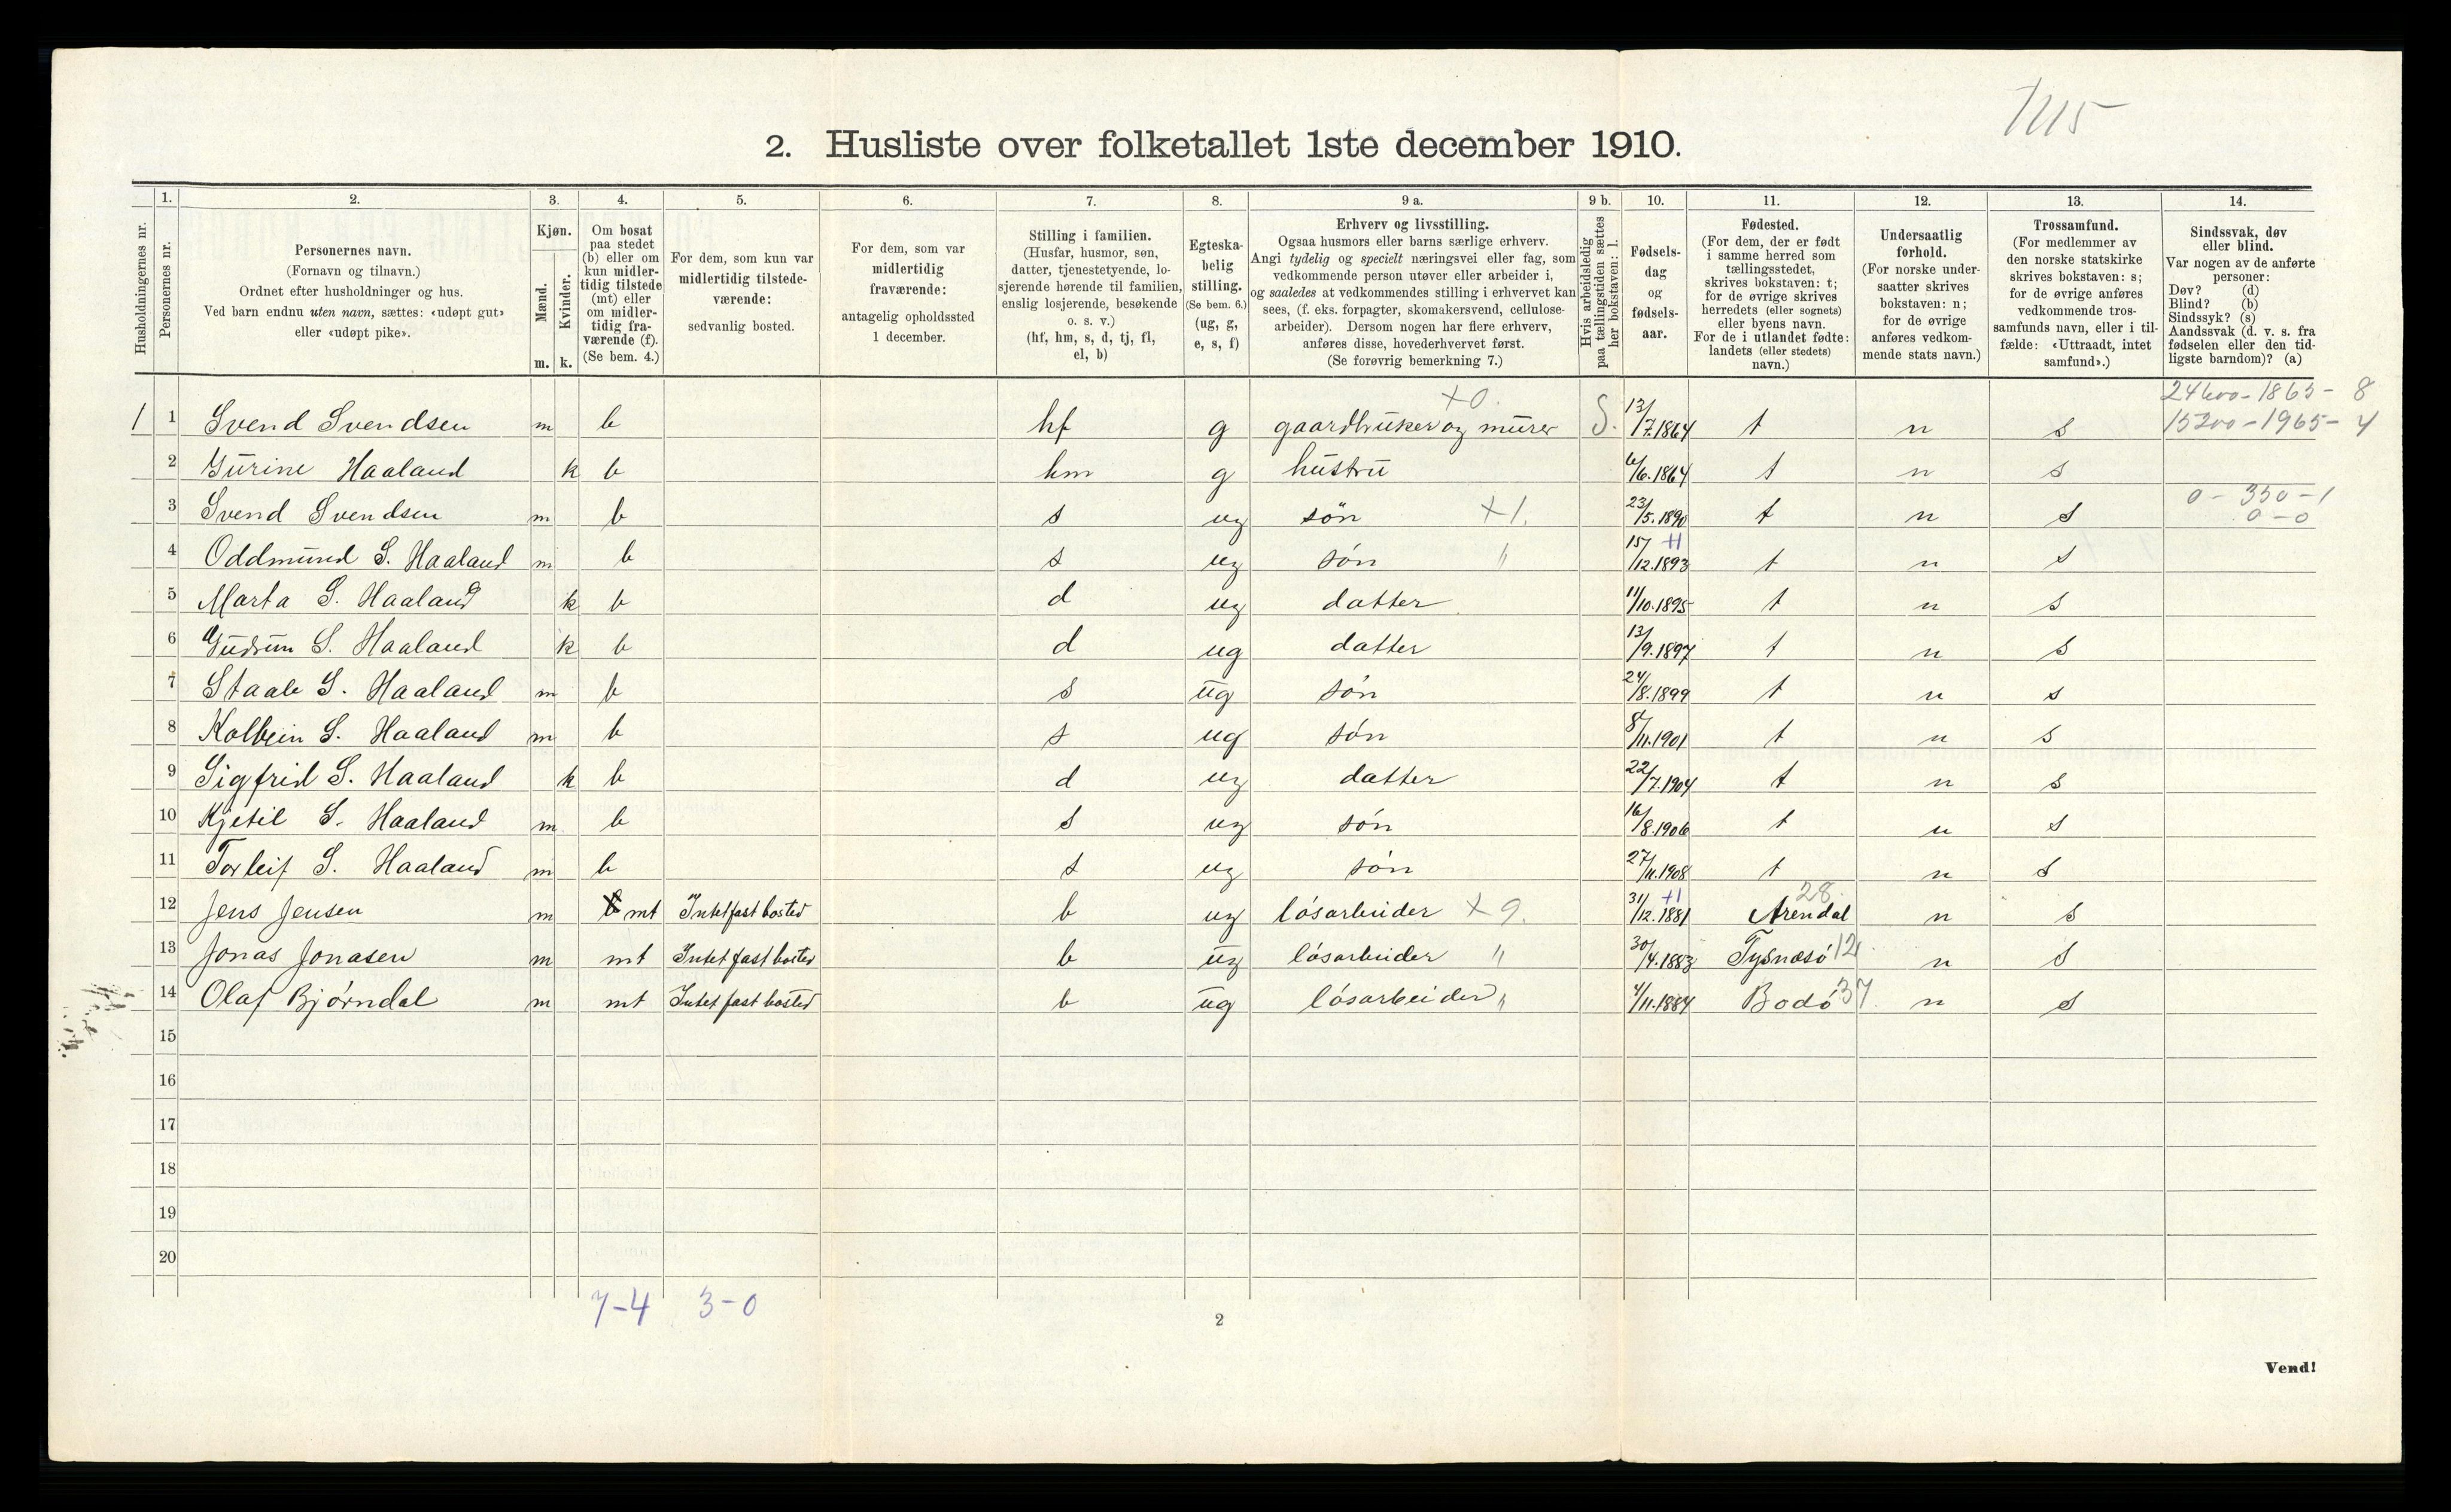 1115
2. Husliste over folketallet 1ste december 1910.
Husholdningernes nr.
1. Personernes nr.
2. Personernes navn.
(Fornavn og tilnavn.)
Ordnet efter husholdninger og hus.
Ved barn endnu uten navn, sættes: «udøpt gut»
eller «udøpt pike».
3. Kjøn.
Mænd. m.
Kvinder. k.
4. Om bosat
paa stedet
(b) eller om
kun midler-
tidig tilstede
(mt) eller
om midler-
tidig fra-
værende (f).
(Se bem. 4.)
5. For dem, som kun var
midlertidig tilstede-
værende:
sedvanlig bosted.
6. For dem, som var
midlertidig
fraværende:
antagelig opholdssted
1 december.
7. Stilling i familien.
(Husfar, husmor, søn,
datter, tjenestetyende, lo-
sjerende hørende til familien,
enslig losjerende, besøkende
o. s. v.)
(hf, hm, s, d, tj, fl,
el, b)
8. Egteska-
belig
stilling.
(Se bem. 6.)
(ug, g,
e, s, f)
9 a. Erhverv og livsstilling.
Ogsaa husmors eller barns særlige erhverv.
Angi tydelig og specielt næringsvei eller fag, som
vedkommende person utøver eller arbeider i,
og saaledes at vedkommendes stilling i erhvervet kan
sees, (f. eks. forpagter, skomakersvend, cellulose-
arbeider). Dersom nogen har flere erhverv,
anføres disse, hovederhvervet først.
(Se forøvrig bemerkning 7.)
9 b. Hvis arbeidsledig
paa tællingstiden sættes
her bokstaven: l.
10. Fødsels-
dag
og
fødsels-
aar.
11. Fødested.
(For dem, der er født
i samme herred som
tællingsstedet,
skrives bokstaven: t;
for de øvrige skrives
herredets (eller sognets)
eller byens navn.
For de i utlandet fødte:
landets (eller stedets)
navn.)
12. Undersaatlig
forhold.
(For norske under-
saatter skrives
bokstaven: n;
for de øvrige
anføres vedkom-
mende stats navn.)
13. Trossamfund.
(For medlemmer av
den norske statskirke
skrives bokstaven: s;
for de øvrige anføres
vedkommende tros-
samfunds navn, eller i til-
fælde: «Uttraadt, intet
samfund».)
14. Sindssvak, døv
eller blind.
Var nogen av de anførte
personer:
Døv? (d)
Blind? (b)
Sindssyk? (s)
Aandssvak (d. v. s. fra
fødselen eller den tid-
ligste barndom)? (a)
+0. 24600-1865- 8
1 1 Svend Svendsen m b hf g gaardbruker og murer S. 13/7.1864 t n s 15200-1965- 4
2 Gurine Haaland k b hm g hustru 6/6.1864 t n s
3 Svend Svendsen m b s ug søn +1. 23/5.1890 t n s 0 - 350 - 1
0 - 0
4 Oddmund S. Haaland m b s ug søn " 15/12.1893 +1 t n s
5 Marta S. Haaland k b d ug datter 11/10.1895 t n s
6 Gudrun S. Haaland k b d ug datter 13/9.1897 t n s
7 Staale S. Haaland m b s ug søn 24/8.1899 t n s
8 Kolbein S. Haaland m b s ug søn 8/11.1901 t n s
9 Sigfrid S. Haaland k b d ug datter 22/7.1904 t n s
10 Kjetil S. Haaland m b s ug søn 16/8.1906 t n s
11 Torleif S. Haaland m b s ug søn 27/11.1908 t n s
12 Jens Jensen m b mt Intet fast bosted b ug løsarbeider +9. 31/12.1881 +1 Arendal 28 n s
13 Jonas Jonasen m mt Intet fast bosted b ug løsarbeider " 30/4.1883 Tysnæsø 12 n s
14 Olaf Bjørndal m mt Intet fast bosted b ug løsarbeider " 4/11.1884 Bodø 37 n s
15
16
17
18
19
20
7-4 3-0
2
Vend!